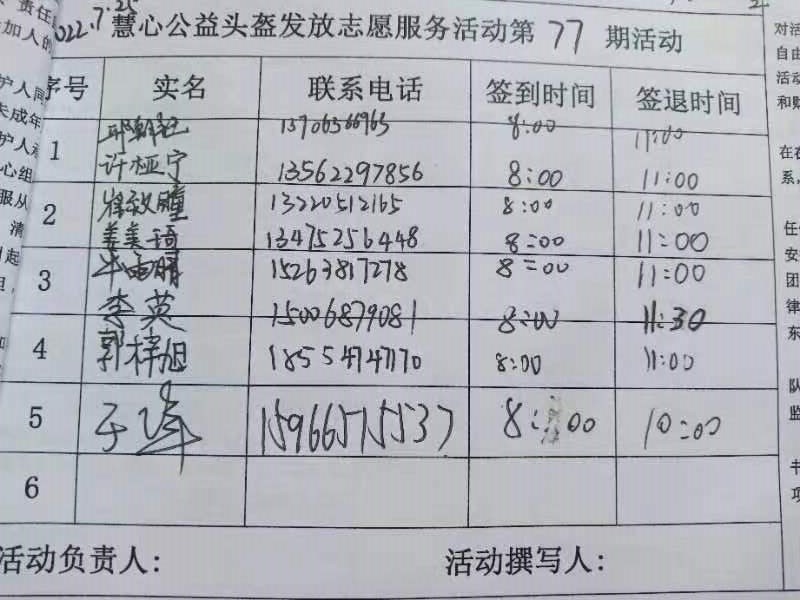 2022.7.25 慧心公益头盔发放志愿服务活动第77期活动
序号 实名 联系电话 签到时间 签退时间
1 13706566965 8:00 11:00
许桠宁 13562297856 8:00 11:00
2 13220512165 8:00 11:00
姜美琦 13475256448 8:00 11:00
3 15263817278 8:00 11:00
李英 15006879081 8:00 11:30
4 郭梓旭 18554747170 8:00 11:00
5 于峰 15966575537 8:00 10:00
6
活动负责人: 活动撰写人:
责任
加人的
护人同
未成年
护人
心组
服从
清
起
对活
自由
活动
和财
在在
系,
任何
安
团
律
东
队
监
书
项